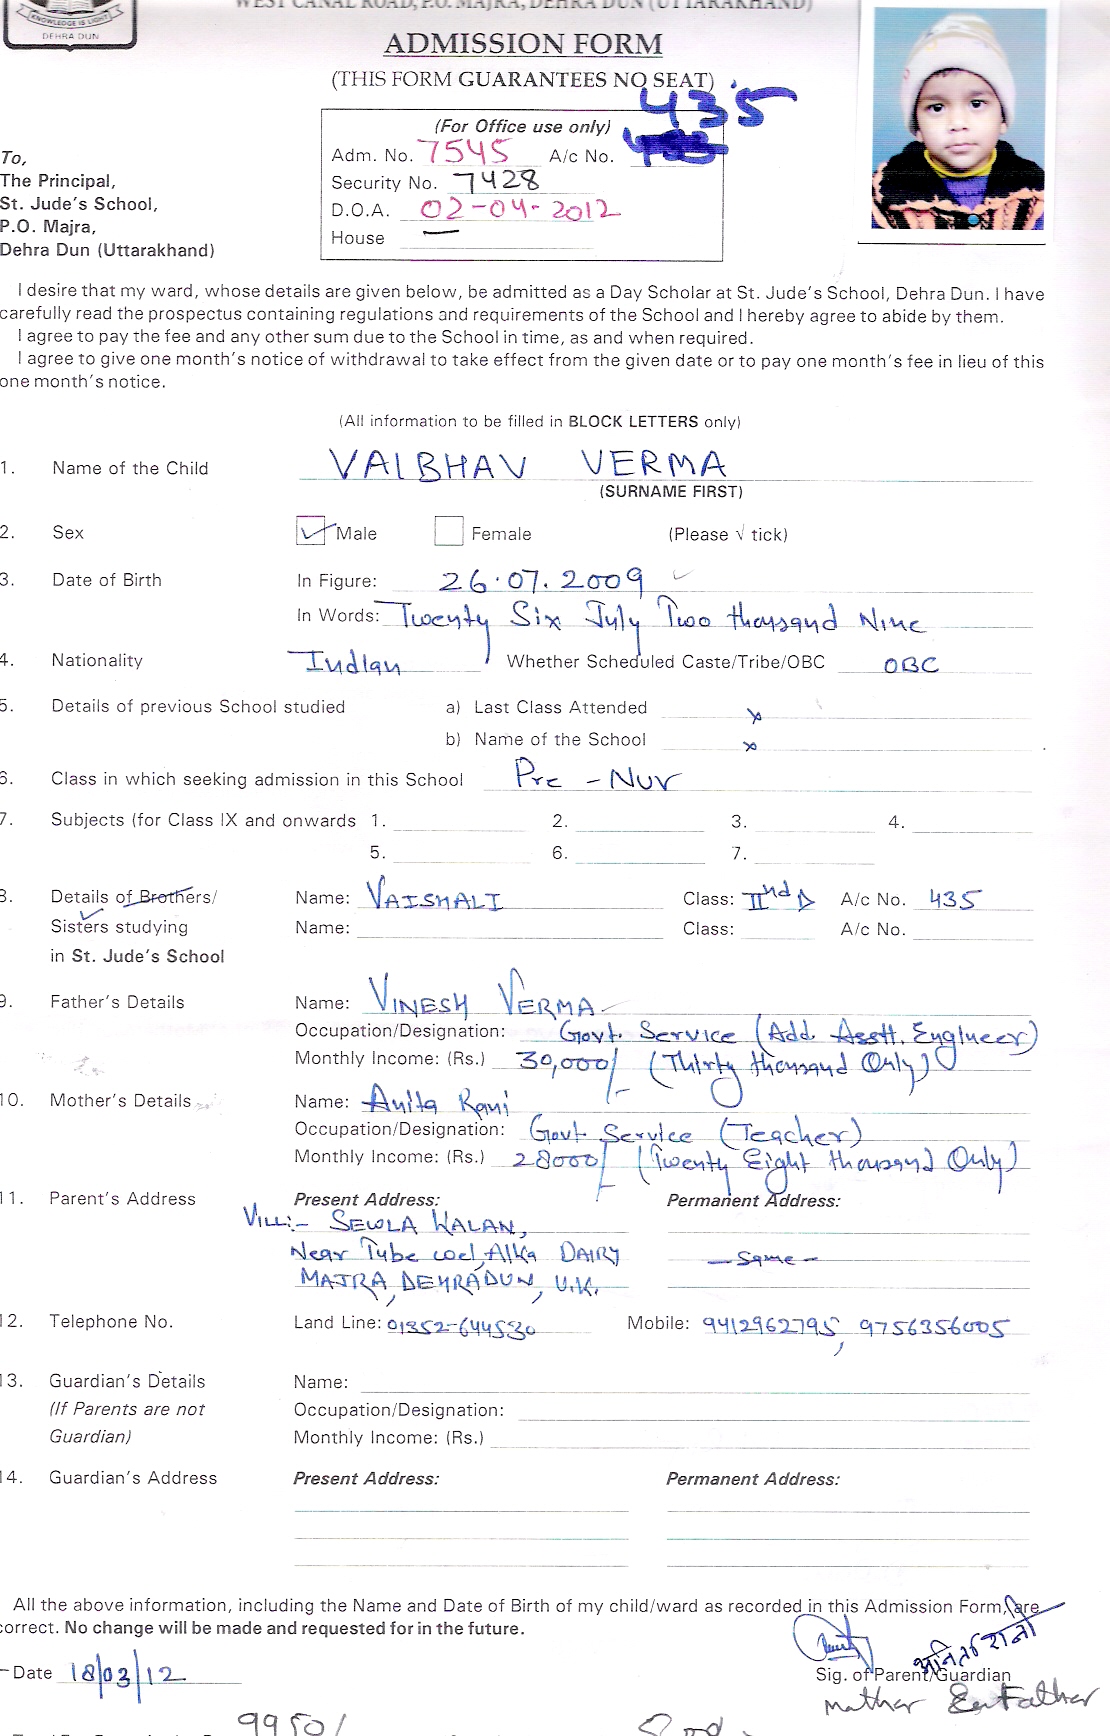 KNOWLEDGE IS LIGHT
DEHRA DUN
WEST CANAL ROAD, P.O. MAJRA, DEHRA DUN (UTTARAKHAND)
ADMISSION FORM
(THIS FORM GUARANTEES NO SEAT)
435
(For Office use only)
Adm. No. 7545 A/c No.
Security No. 7428
D.O.A. 02-04-2012
House —
To,
The Principal,
St. Jude's School,
P.O. Majra,
Dehra Dun (Uttarakhand)
I desire that my ward, whose details are given below, be admitted as a Day Scholar at St. Jude's School, Dehra Dun. I have
carefully read the prospectus containing regulations and requirements of the School and I hereby agree to abide by them.
I agree to pay the fee and any other sum due to the School in time, as and when required.
I agree to give one month's notice of withdrawal to take effect from the given date or to pay one month's fee in lieu of this
one month's notice.
(All information to be filled in BLOCK LETTERS only)
1. Name of the Child VAIBHAV VERMA
(SURNAME FIRST)
2. Sex ✓ Male Female (Please √ tick)
3. Date of Birth In Figure: 26.07.2009
In Words: Twenty Six July Two thousand Nine
4. Nationality Indian Whether Scheduled Caste/Tribe/OBC OBC
5. Details of previous School studied a) Last Class Attended x
b) Name of the School x
6. Class in which seeking admission in this School Pre - Nur
7. Subjects (for Class IX and onwards 1. 2. 3. 4.
5. 6. 7.
8. Details of Brothers/ Name: VAISHALI Class: IInd D A/c No. 435
Sisters studying Name: Class: A/c No.
in St. Jude's School
9. Father's Details Name: VINESH VERMA
Occupation/Designation: Govt. Service (Add. Asstt. Engineer)
Monthly Income: (Rs.) 30,000/- (Thirty thousand Only)
10. Mother's Details Name: Anita Rani
Occupation/Designation: Govt. Service (Teacher)
Monthly Income: (Rs.) 28000/- (Twenty Eight thousand Only)
11. Parent's Address Present Address: Permanent Address:
VILL:- SEWLA KALAN,
Near Tube wel, Alka DAIRY - Same -
MAJRA, DEHRADUN, U.K.
12. Telephone No. Land Line: 01352-644530 Mobile: 9412962795, 9756356005
13. Guardian's Details Name:
(If Parents are not Occupation/Designation:
Guardian) Monthly Income: (Rs.)
14. Guardian's Address Present Address: Permanent Address:
All the above information, including the Name and Date of Birth of my child/ward as recorded in this Admission Form, are
correct. No change will be made and requested for in the future.
अनिता रानी
Date 18/03/12 Sig. of Parent/Guardian
Mother Father
9950/